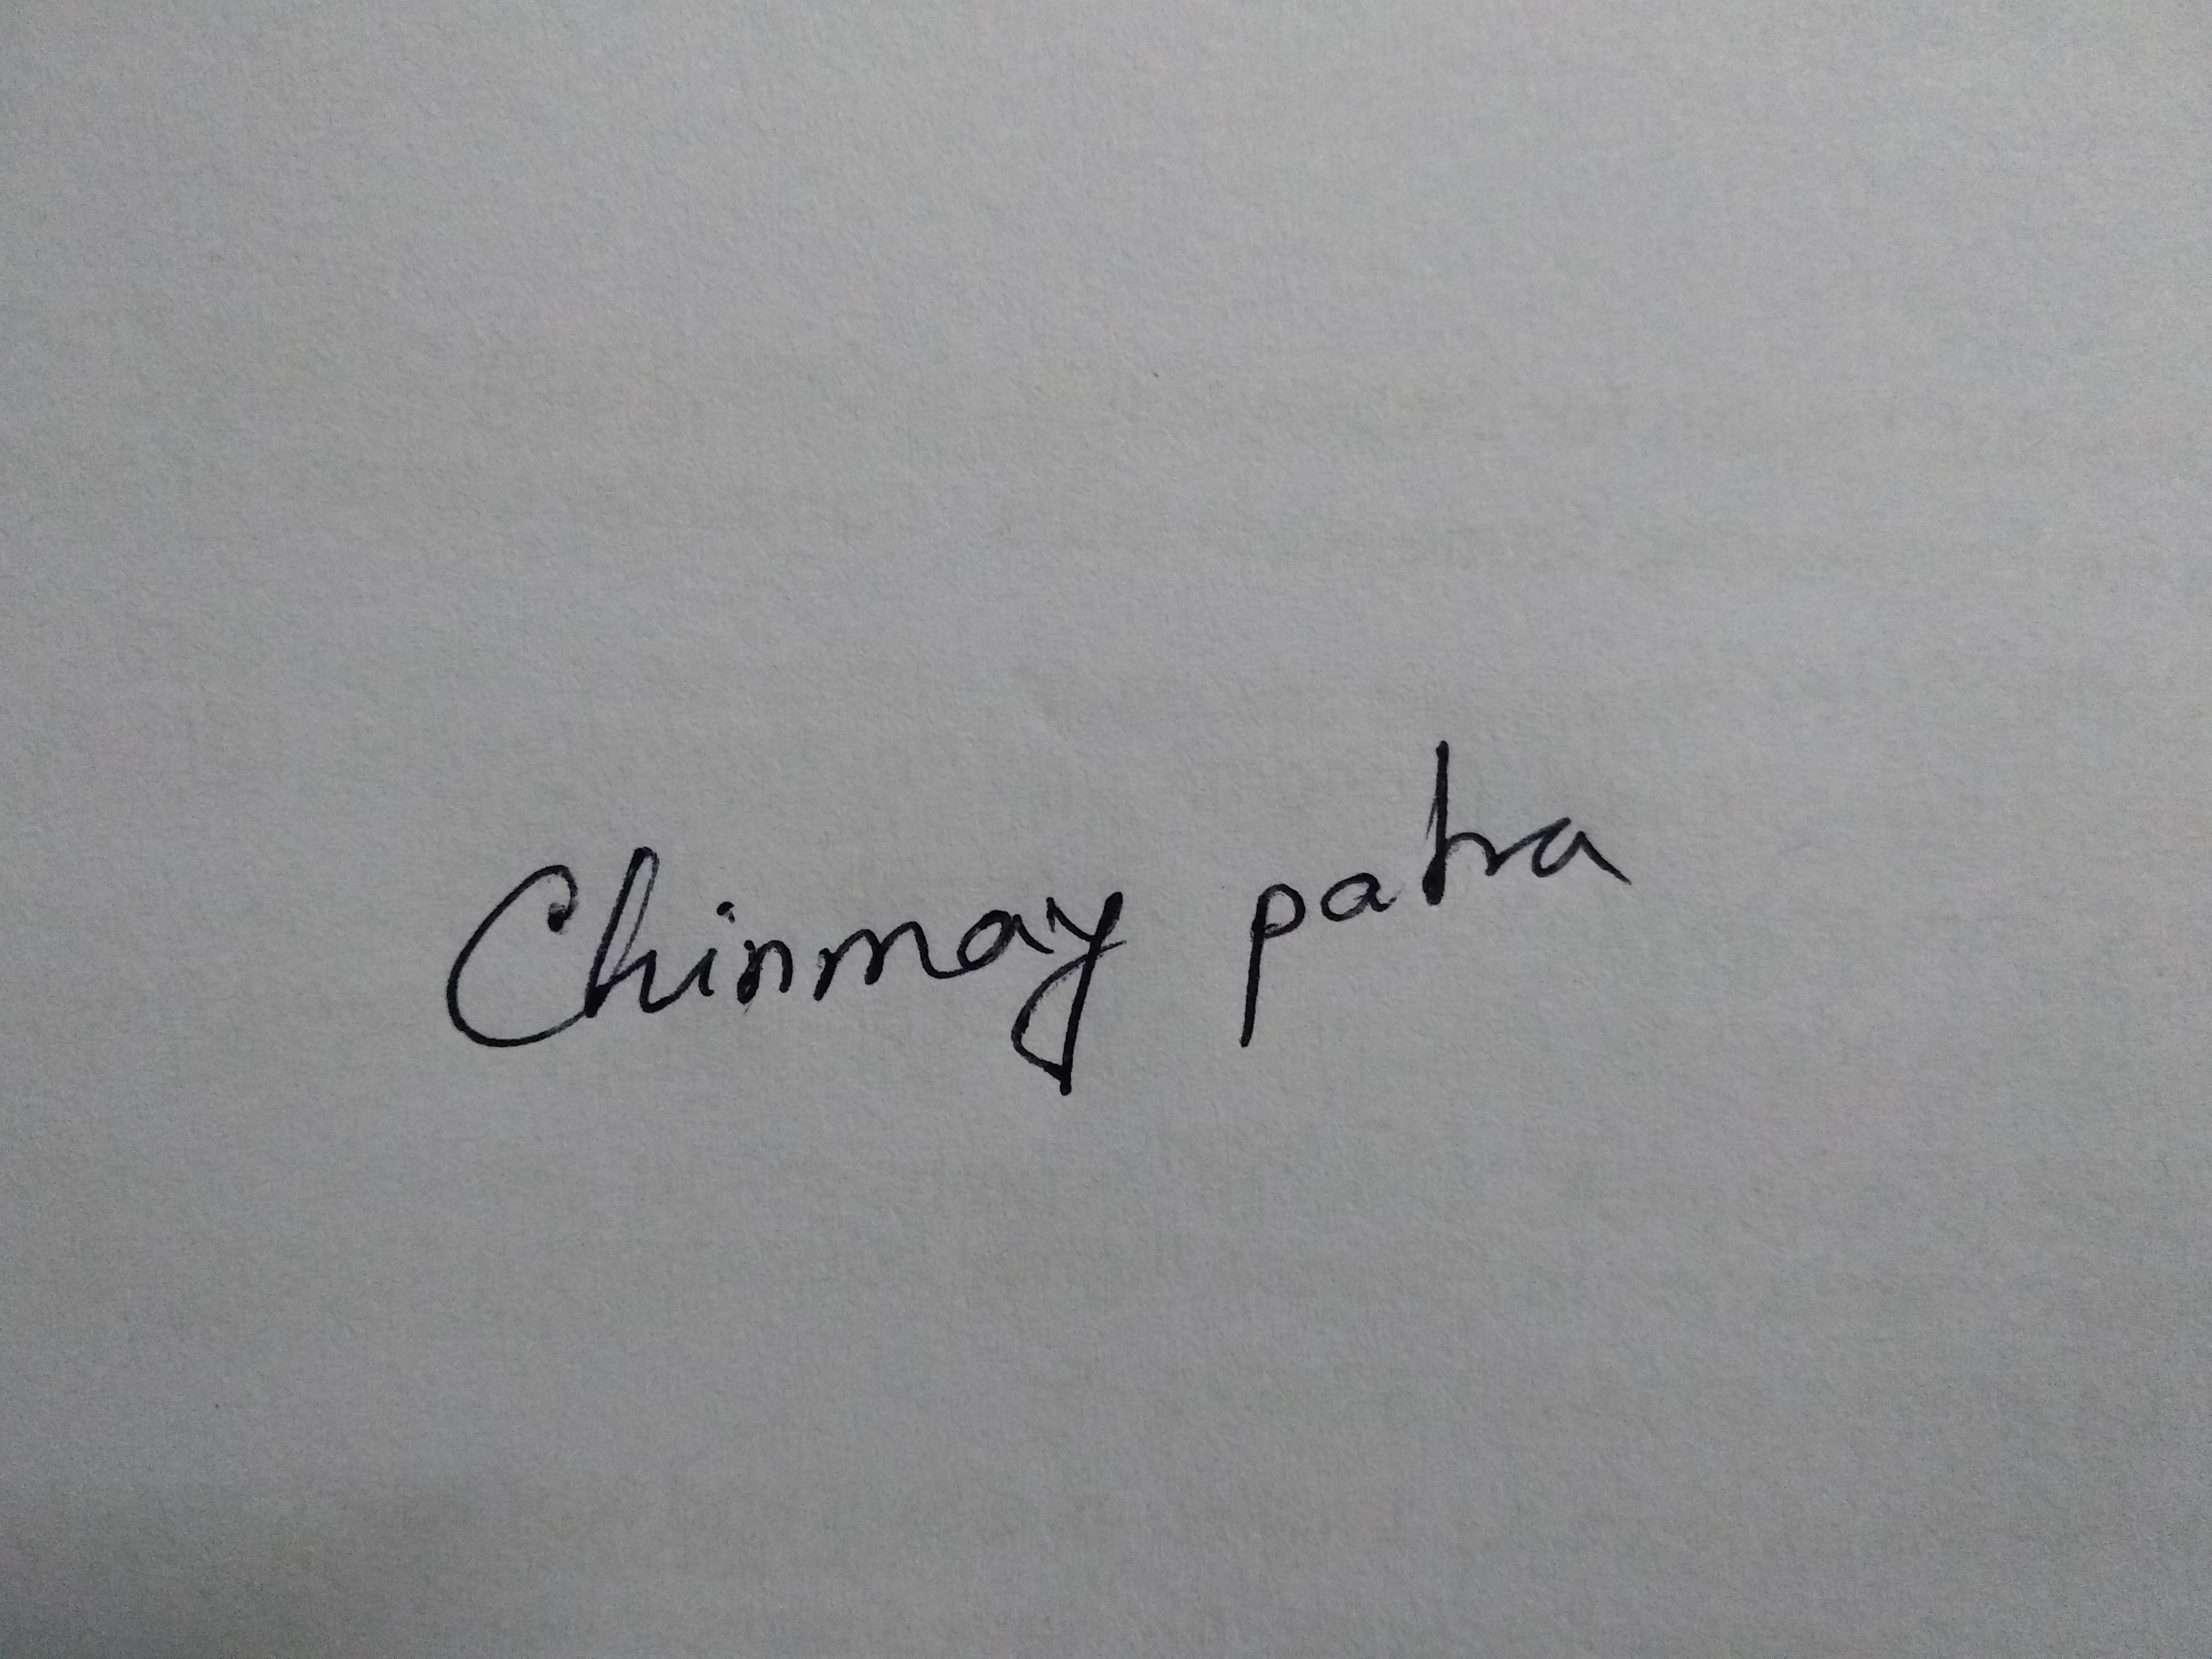 Chinmay patra